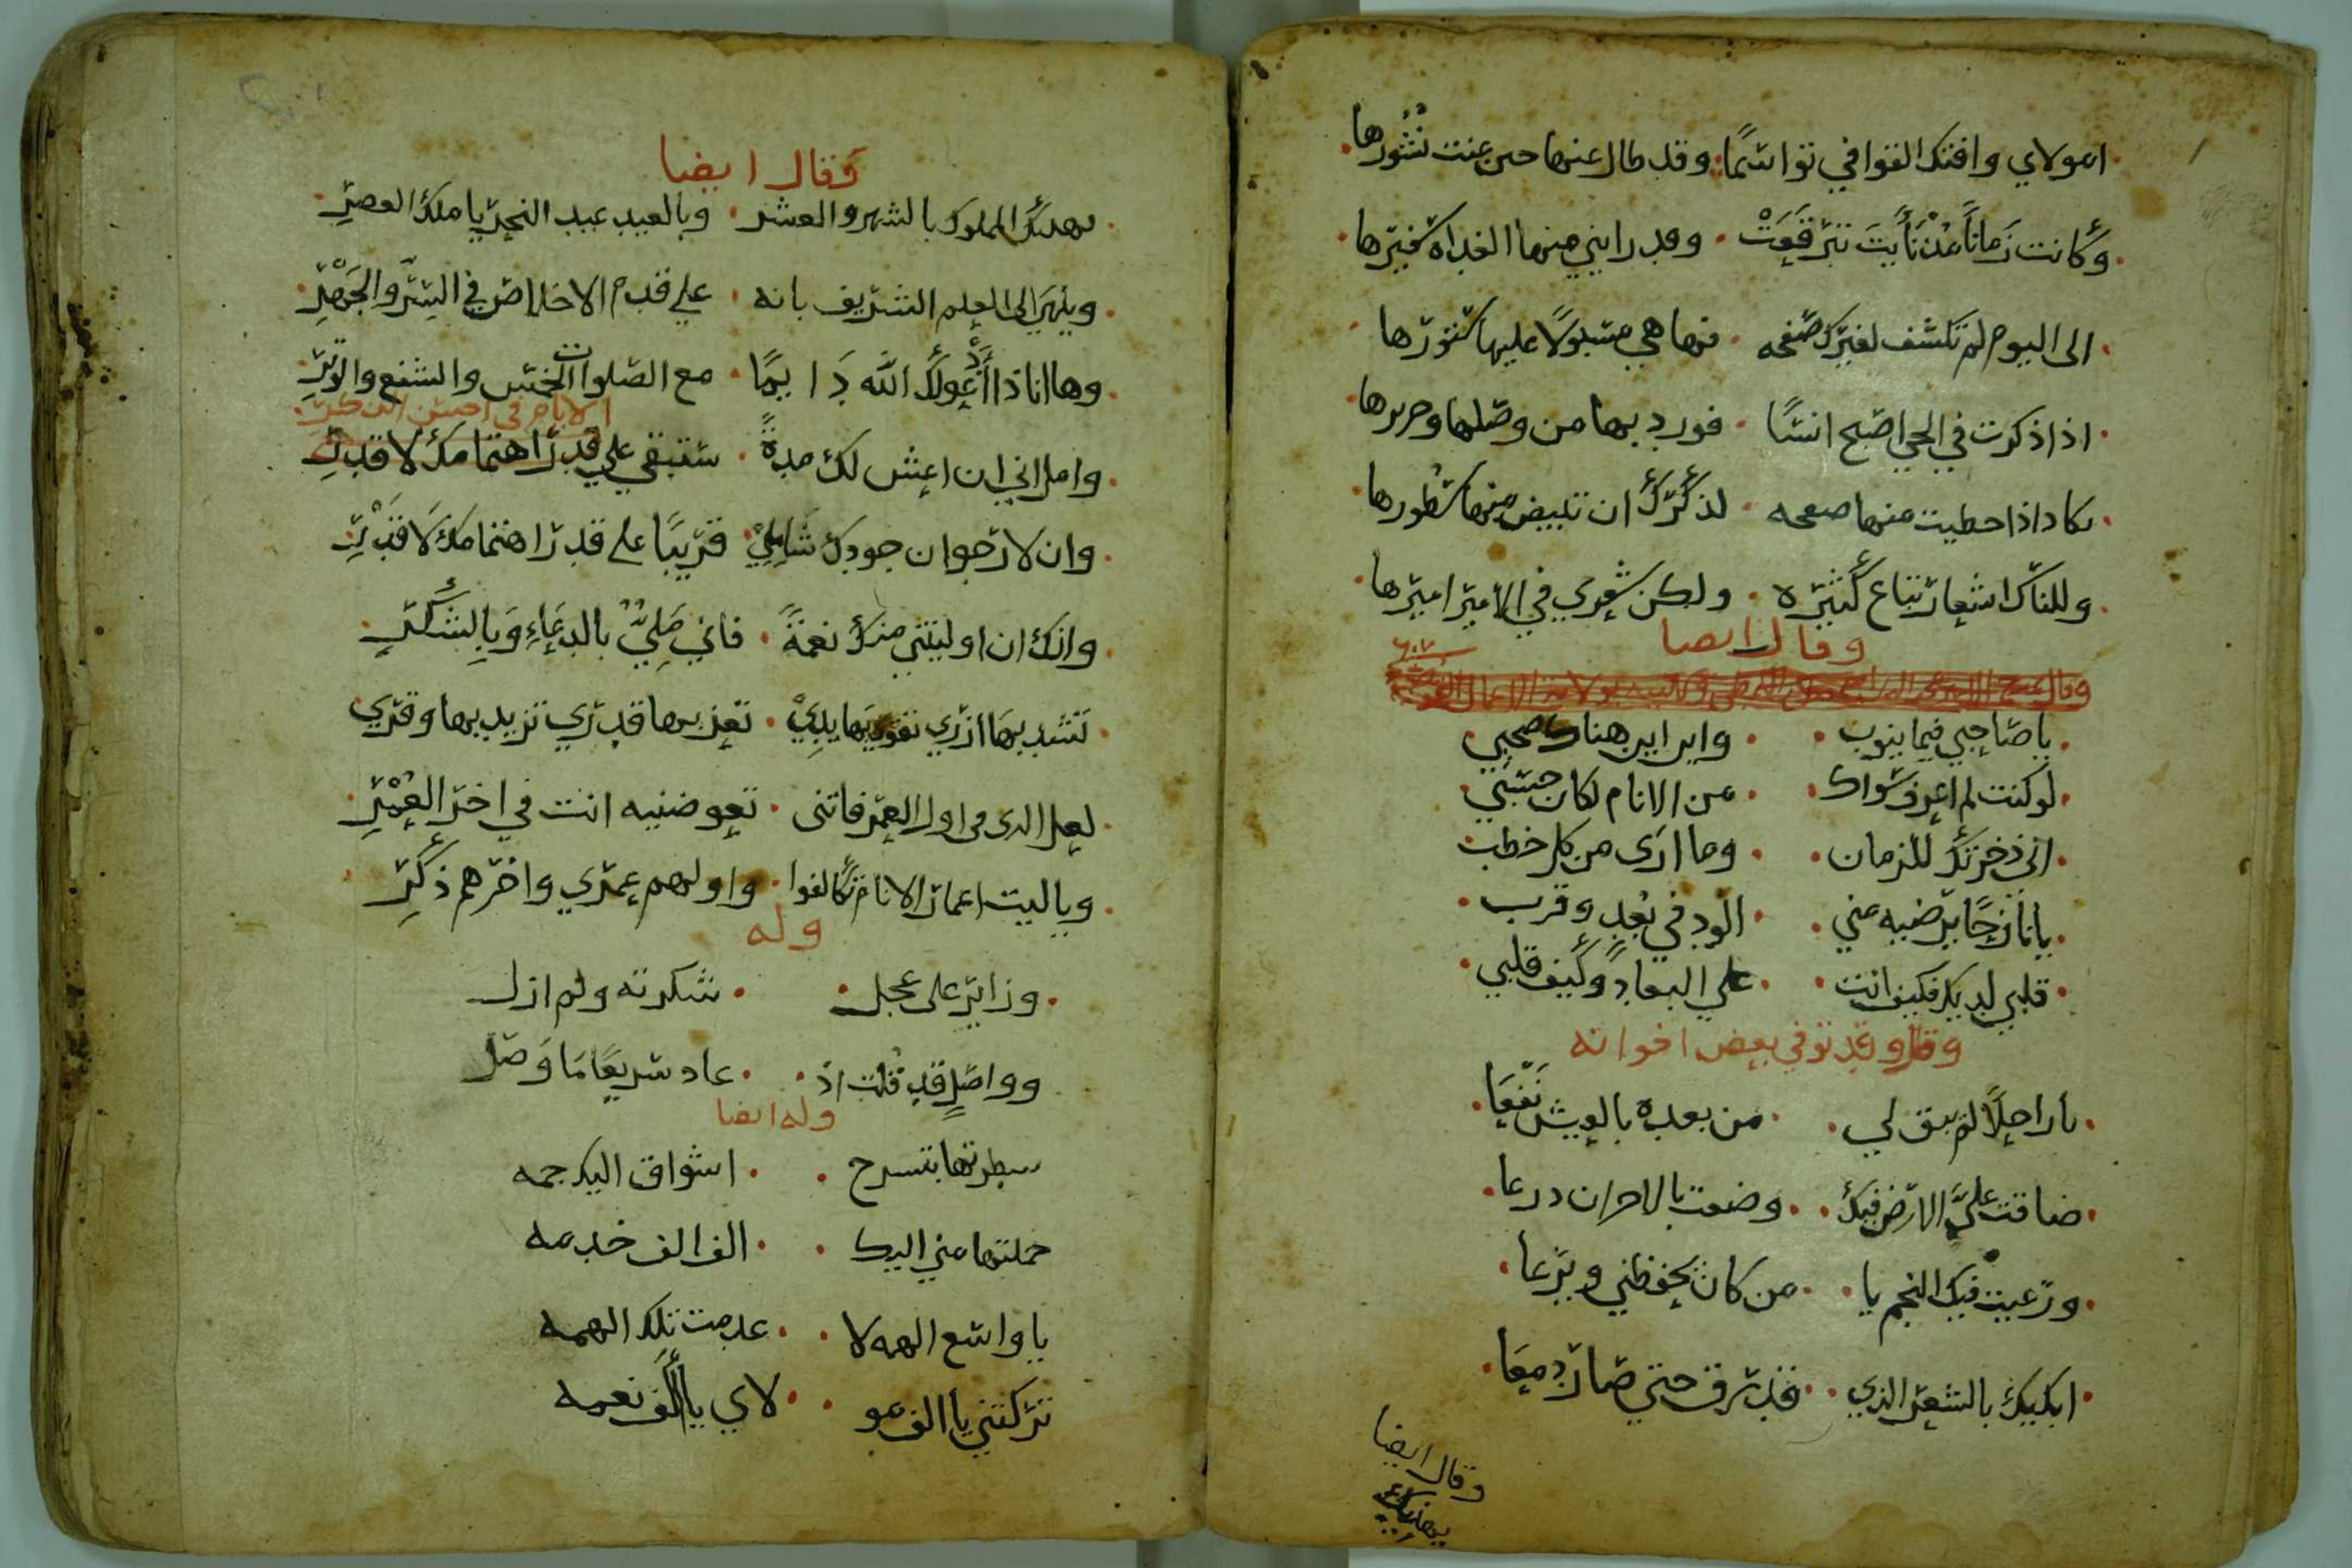 امولاي وافتك القوافي تواسما وقد طال عنها حين عنت نشورها
وكانت زمانا مذ نأيت تبرقعت وقد رابني منها الغداة سفيرها
الى اليوم لم تكشف لغيرك صفحه فها هي مسبولا عليها ستورها
اذا ذكرت في الحي اصبح انسا فورد بها من وصلها وحريرها
يكاد اذا حطيت منها صفحه لذكرك ان تبيض منها سطورها
وللناس اشعار تباع كثيره ولكن شعري في الامير اميرها
وقال ايضا
يا صاحبي فيما ينوب واين اين هناك صحبي
لو كنت لم اعرف سواك من الانام لكان حسبي
اني ذخرتك للزمان وما ارى من كل خطب
يا نازحا يرضيه مني الود في بعد وقرب
قلبي لديك فكيف انت على البعاد وكيف قلبي
وقال وقد توفي بعض اخوانه
يا راحلا لم يبق لي من بعده بالعيش نفعا
ضاقت علي الارض فيك وضقت بالاحزان درعا
ورعيت فيك النجم يا من كان يحفظني ويرعا
ابكيك بالشعر الذي قد رق حتي صار دمعا
وقال ايضا
يهنيك
وقال ايضا
يهنيك المملوك بالشهر والعشر وبالعيد عيد النحر يا ملك العصر
وينهي الى العلم الشريف بانه علي قدم الاخلاص في السر والجهر
وها انا ذا ادعو لك الله دايما مع الصلوات الخمس والشفع والوتر
الايام في احسن الذكر
وامل اني ان اعش لك مدة ستبقي علي قدر اهتمامك لا قدر
وان لارجو ان جودك شاملي قريبا على قدر اهتمامك لا قدري
وانك ان اوليتني منك نعمة فاني ملي بالدعاء وبالشكر
تشد بها ازري تقوي بها يدي تعز بها قدري تزيد بها وفري
لعل الذي في اول العمر فاتني تعوضنيه انت في اخر العمر
ويا ليت اعمار الانام تكالفوا واولهم عمري واخرهم ذكر
وله
وزاير على عجل شكرته ولم ازل
وواصل قد قلت اذ عاد سريعا ما وصل
وله ايضا
سطرتها بتسرح اشواق اليك جمه
حملتها مني اليك الف الف خدمه
يا واسع الهمه لا عدمت تلك الهمه
تركتني يا الف مو لاي يا الف نعمه